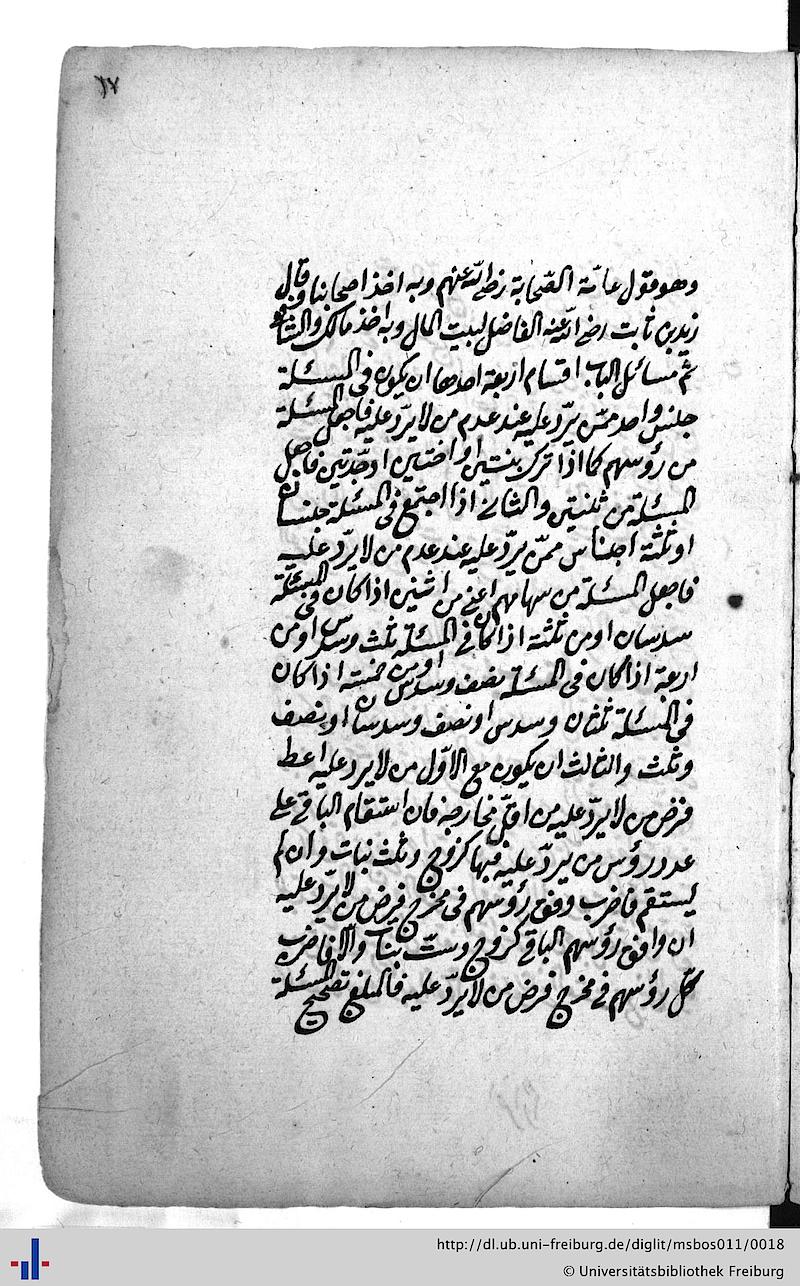 ١٧
وهو قول عامّة الصّحابة رضي الله عنهم وبه اخذ اصحابنا وقال
زيد بن ثابت رضي الله عنه الفاضل لبيت المال وبه اخذ مالك والشافعي
ثمّ مسائل الباب اقسام اربعة احدها ان يكون في المسئلة
جنس واحد ممّن يردّ عليه عند عدم من لا يردّ عليه فاجعل المسئلة
من رؤسهم كما اذا ترك بنتين او اختين او جدّتين فاجعل
المسئلة من ثنتين والثاني اذا اجتمع في المسئلة جنسان
او ثلثة اجناس ممّن يردّ عليه عند عدم من لا يردّ عليه
فاجعل المسئلة من سهامهم اعني من اثنين اذا كان في المسئلة
سدسان او من ثلثة اذا كان في المسئلة ثلث وسدس او من
اربعة اذا كان في المسئلة نصف وسدس او من خمسة اذا كان
في المسئلة ثلثان وسدس او نصف وسدسان او نصف
وثلث والثالث ان يكون مع الاوّل من لا يرد عليه اعط
فرض من لا يردّ عليه من اقلّ مخارجه فان استقام الباقي على
عدد رؤس من يردّ عليه فبها كزوج وثلث بنات وان لم
يستقم فاضرب وفق رؤسهم في مخرج فرض من لا يردّ عليه
ان وافق رؤسهم الباقي كزوج وستّ بنات والّا فاضرب
كلّ رؤسهم في مخرج فرض من لا يردّ عليه فالمبلغ تصحيح المسئلة
http://dl.ub.uni-freiburg.de/diglit/msbos011/0018
© Universitätsbibliothek Freiburg